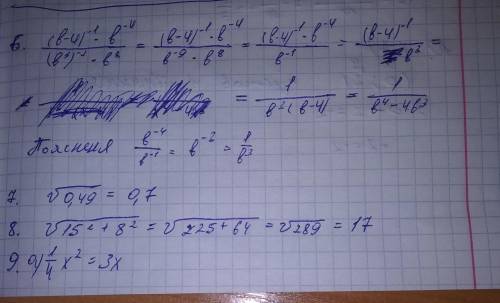 6. \frac{(в-4)^{-1} \cdot в^{-4}}{(в^3)^{-3} \cdot в^8} = \frac{(в-4)^{-1} \cdot в^{-4}}{в^{-9} \cdot в^8} = \frac{(в-4)^{-1} \cdot в^{-4}}{в^{-1}} = \frac{(в-4)^{-1}}{в^3} =
= \frac{1}{в^3(в-4)} = \frac{1}{в^4-4в^3}
Пояснення \frac{в^{-4}}{в^{-1}} = в^{-3} = \frac{1}{в^3}
7. √0,49 = 0,7
8. √15² + 8² = √225 + 64 = √289 = 17
9. а) \frac{1}{4} x² = 3x